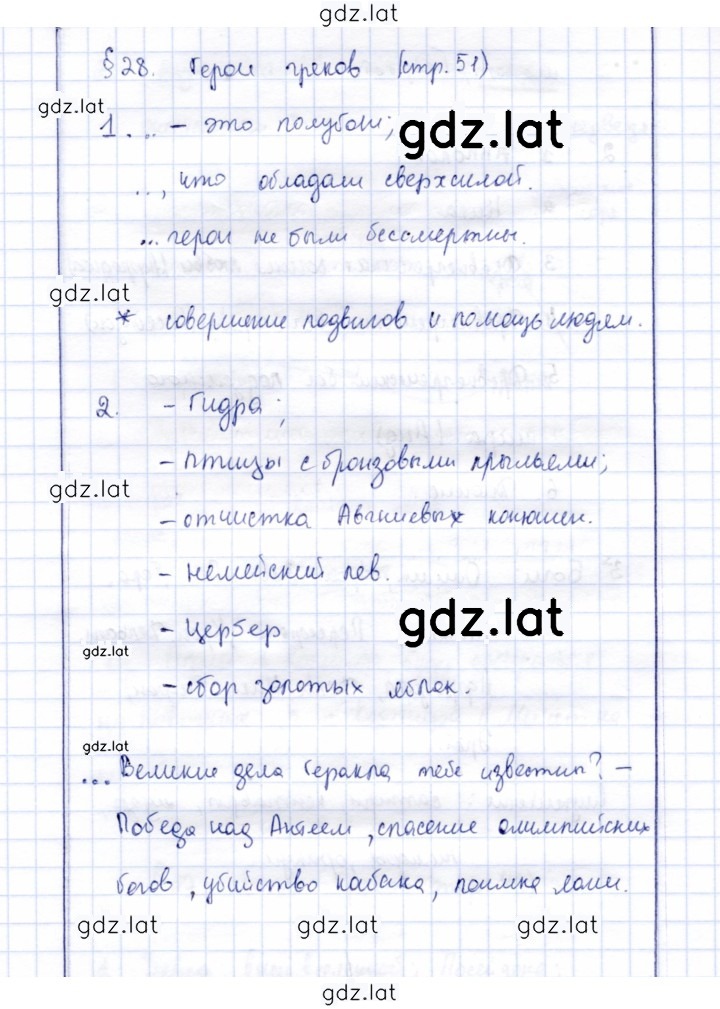 gdz.lat
§28. Герои греков (стр. 51)
gdz.lat
1. .. – это полубоги;
gdz.lat
.., что обладали сверхсилой.
... герои не были бессмертны.
gdz.lat
* совершение подвигов и помощь людям.
2. – Гидра;
– птицы с бронзовыми крыльями;
gdz.lat
– отчистка Авгиевых конюшен.
– немейский лев.
– Цербер
gdz.lat
gdz.lat
– сбор золотых яблок.
gdz.lat
... Великие дела Геракла тебе известны? –
Победа над Антеем, спасение олимпийских
богов, убийство кабана, поимка лани.
gdz.lat gdz.lat gdz.lat
gdz.lat